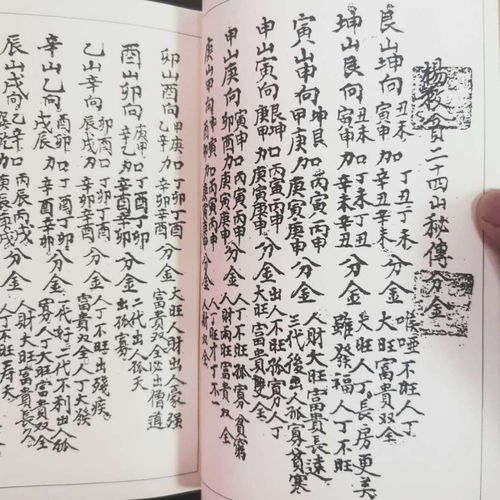 楊救貧二十四山秘傳分金
艮山坤向 丑未寅申 加 丁丑丁未辛丑辛未 分金 喉啞不旺人丁 大旺富貴双全
坤山艮向 丑未寅申 加 丁未丁丑辛未辛丑 分金 大旺人丁長房更美 雖發福人丁不旺
寅山申向 坤艮甲庚 加 丙寅丙申庚寅庚申 分金 人財大旺富貴長遠 三代後出人孤寡貧寒
申山寅向 艮坤庚甲 加 丙寅丙申庚寅庚申 分金 不旺人丁 大旺富貴雙全
申山庚向 寅申卯酉 加 丙寅丙申庚寅庚申 分金 人丁不旺孤寡貧窮 人財兩旺富貴双全
庚山甲向 加 丙寅丙申 分金 人丁不旺 人財双全
卯山酉向 甲庚乙辛 加 丁卯丁酉辛卯辛酉 分金 大旺人財出人豪强 富貴双全必出僧道
酉山卯向 庚甲辛乙 加 丁酉丁卯辛酉辛卯 分金 二代出人孤夭 出孤寡
乙山辛向 卯酉辰戌 加 丁卯丁酉辛卯辛酉 分金 人丁不旺出殘疾 富貴双全人丁大發
辛山乙向 酉卯戌辰 加 丁酉丁卯辛酉辛卯 分金 二代好二代不利出人孤寡 人丁大旺富貴双全
辰山戌向 乙辛巽乾 加 丙辰丙戌庚辰庚戌 分金 人財大旺富貴長久 人丁不旺壽夭